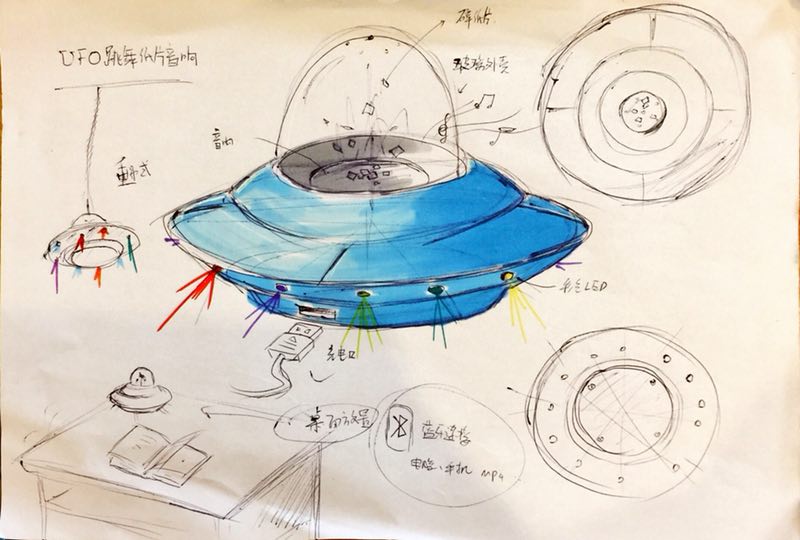 UFO跳舞纸片音响
碎纸片
玻璃外壳
音响
垂吊式
彩色LED
充电口
桌面放置
蓝牙连接
电脑、手机 MP4